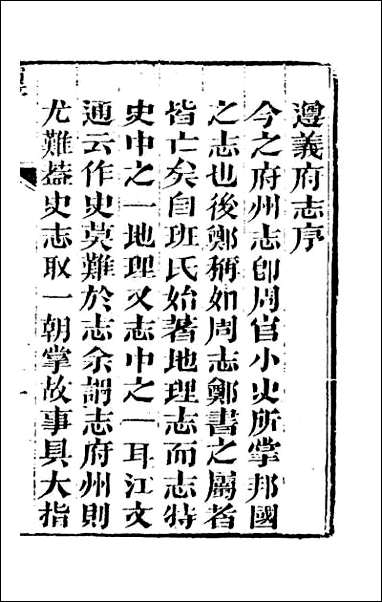 遵義府志序
今之府州志卽周官小史所掌邦國
之志也後鄭稱如周志鄭書之屬者
皆亡矣自班氏始著地理志而志特
史中之一地理又志中之一耳江文
通云作史莫難於志余謂志府州則
尤難葢史志取一朝掌故事具大指